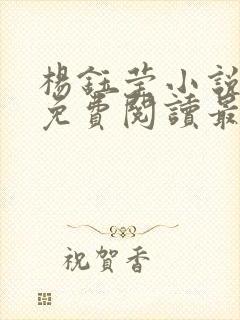 楊鈺莹小說
免費閱讀最
祝賀香